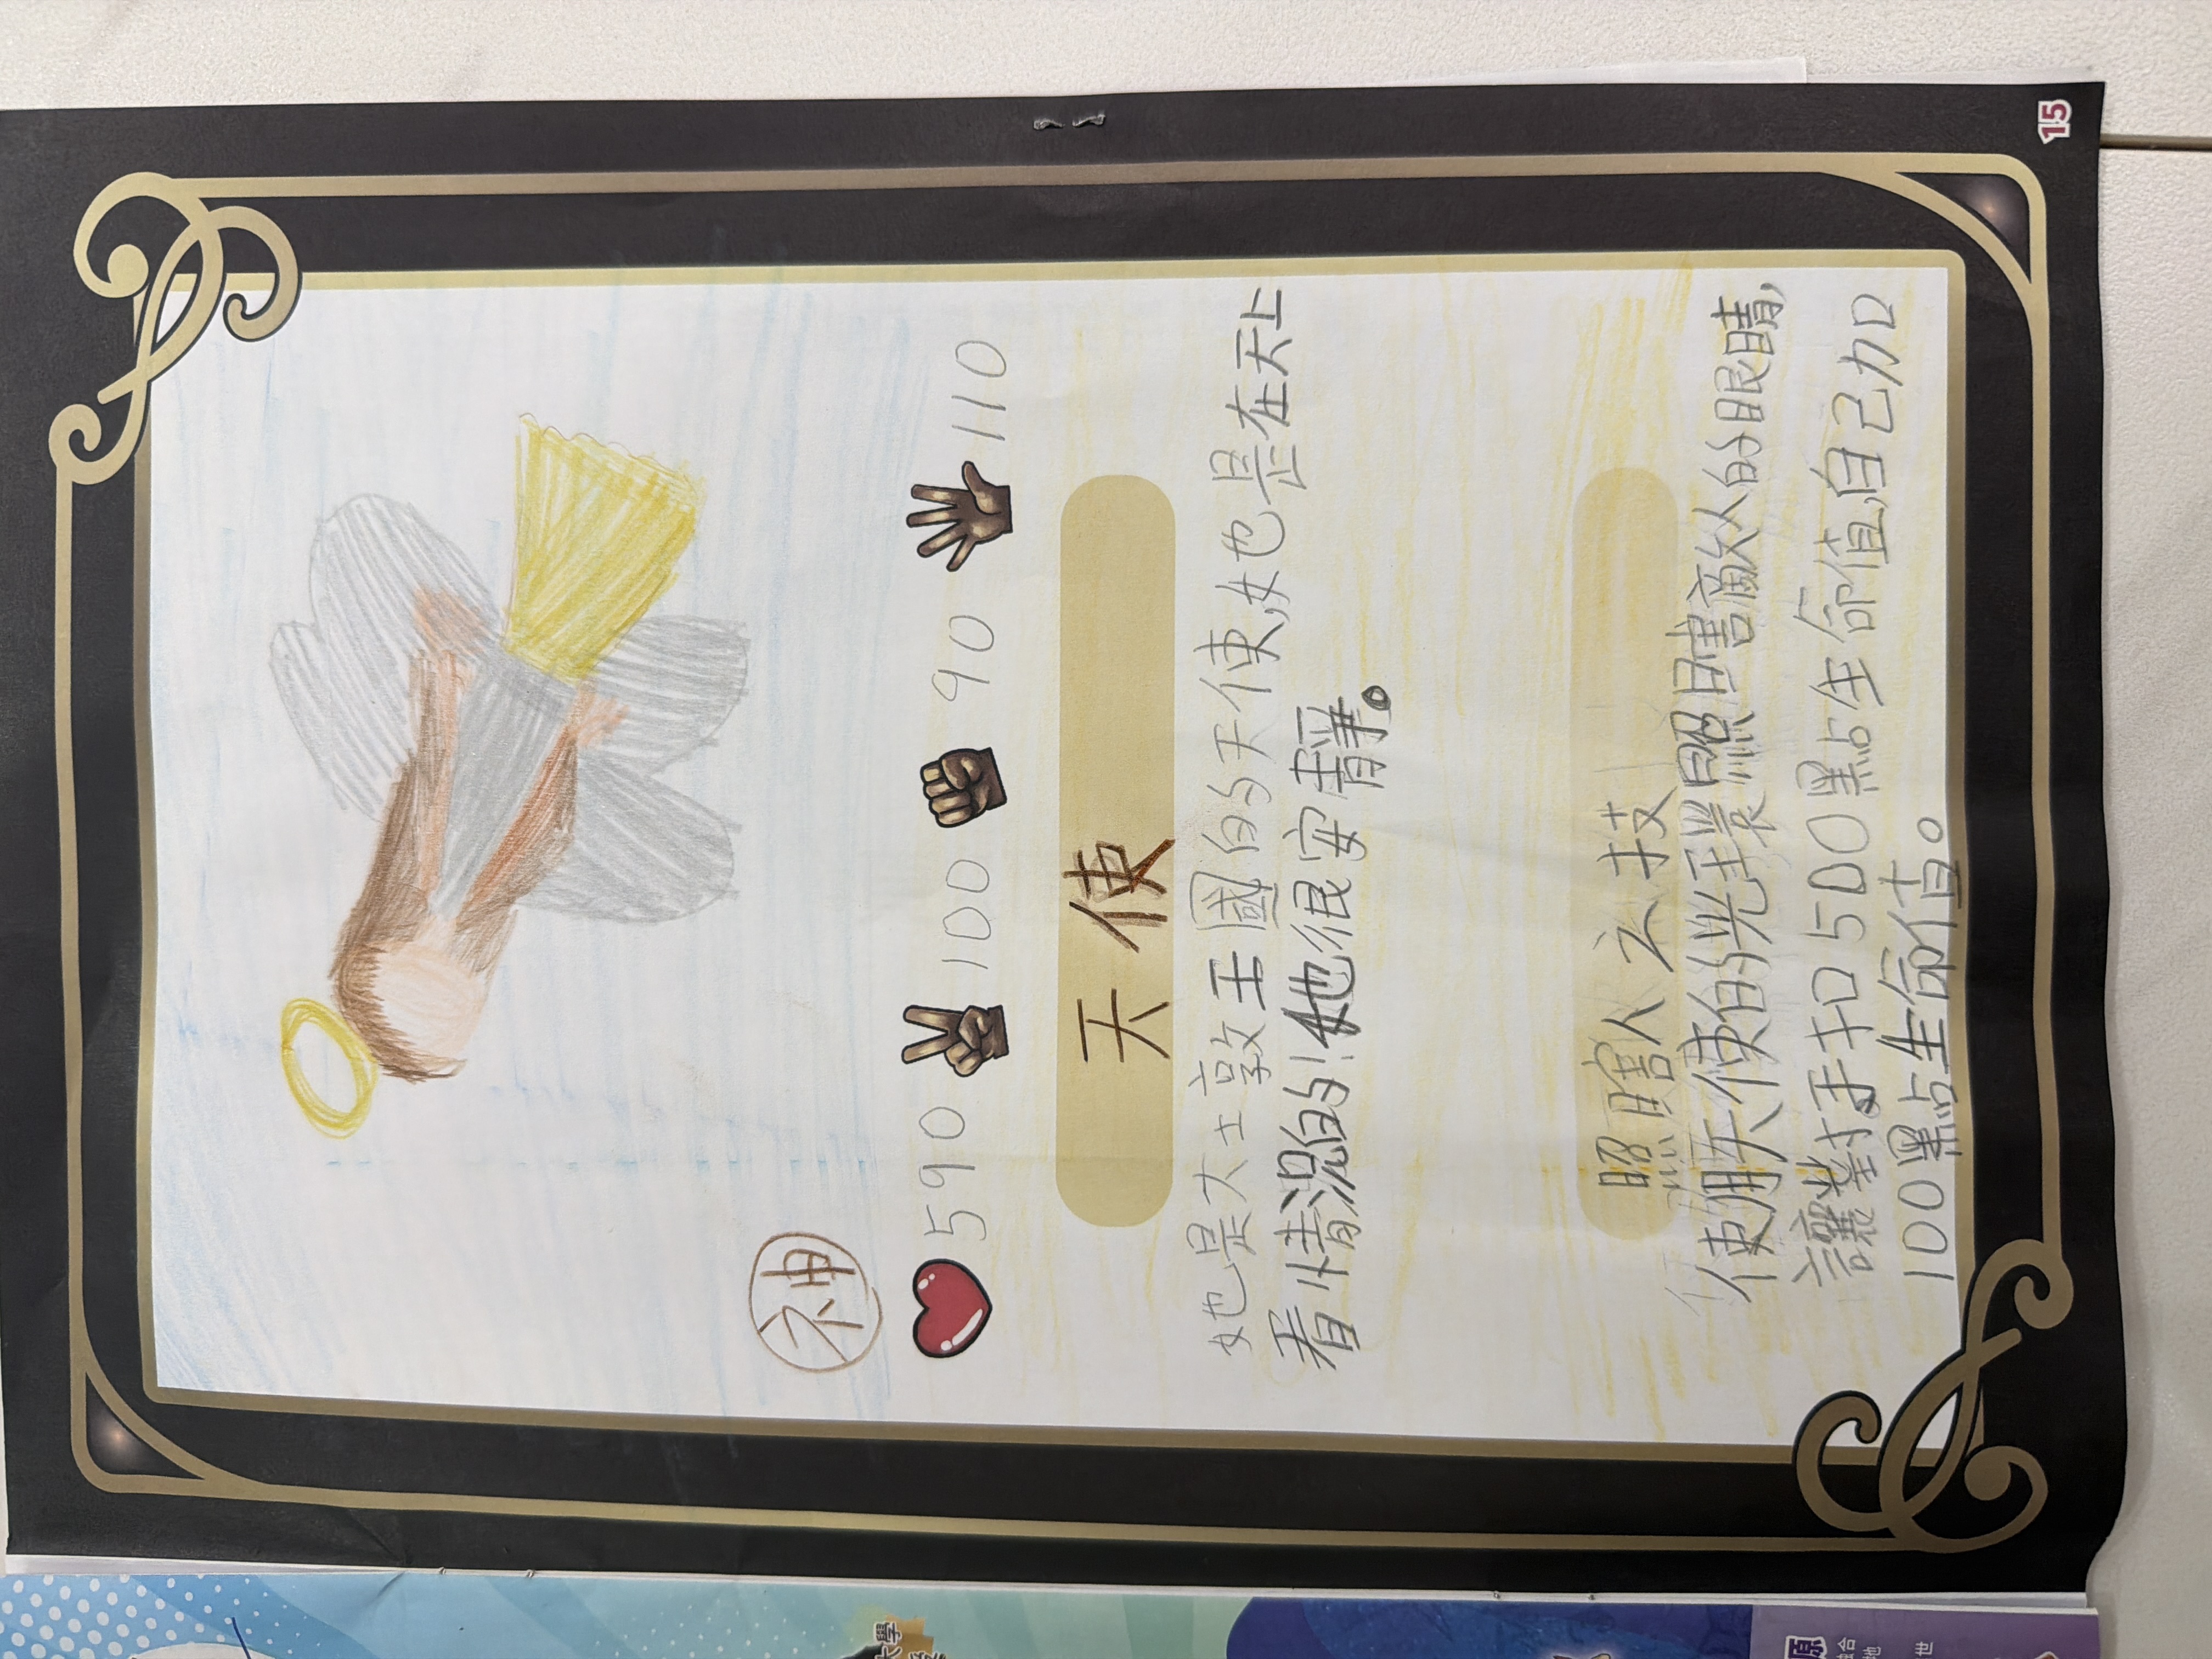 15
神
590 100 90 110
天使
她是大士敦王國的天使,她也是在天上
看情況的!她很安靜。
照瞎人之技
使用天使的光環照瞎敵人的眼睛,
讓對手扣500點生命值,自己加
100點生命值。